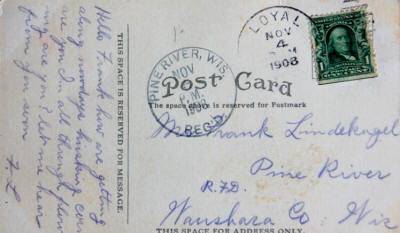 Hello Frank how are getting
along nowdays husking corn
are you I'm all through plow
ing are you? let me hear
from you soon
F. L.
THIS SPACE IS RESERVED FOR MESSAGE.
PINE RIVER, WIS.
NOV
P.M.
REC'D.
LOYAL
NOV
4
M
1908
1 1
Post Card
The space above is reserved for Postmark
Mr. Frank Lindekugel
Pine River
R.F.D.
Waushara Co. Wis
THIS SPACE FOR ADDRESS ONLY.